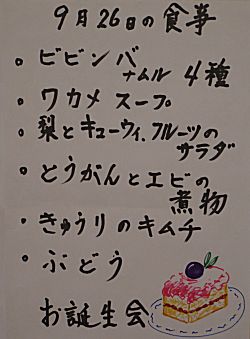 9月26日の食事
。ビビンバ
ナムル 4種
。ワカメ スープ
。梨とキューウィ、フルーツの
サラダ
。とうがんとエビの
煮物
。きゅうりのキムチ
。ぶどう
お誕生会